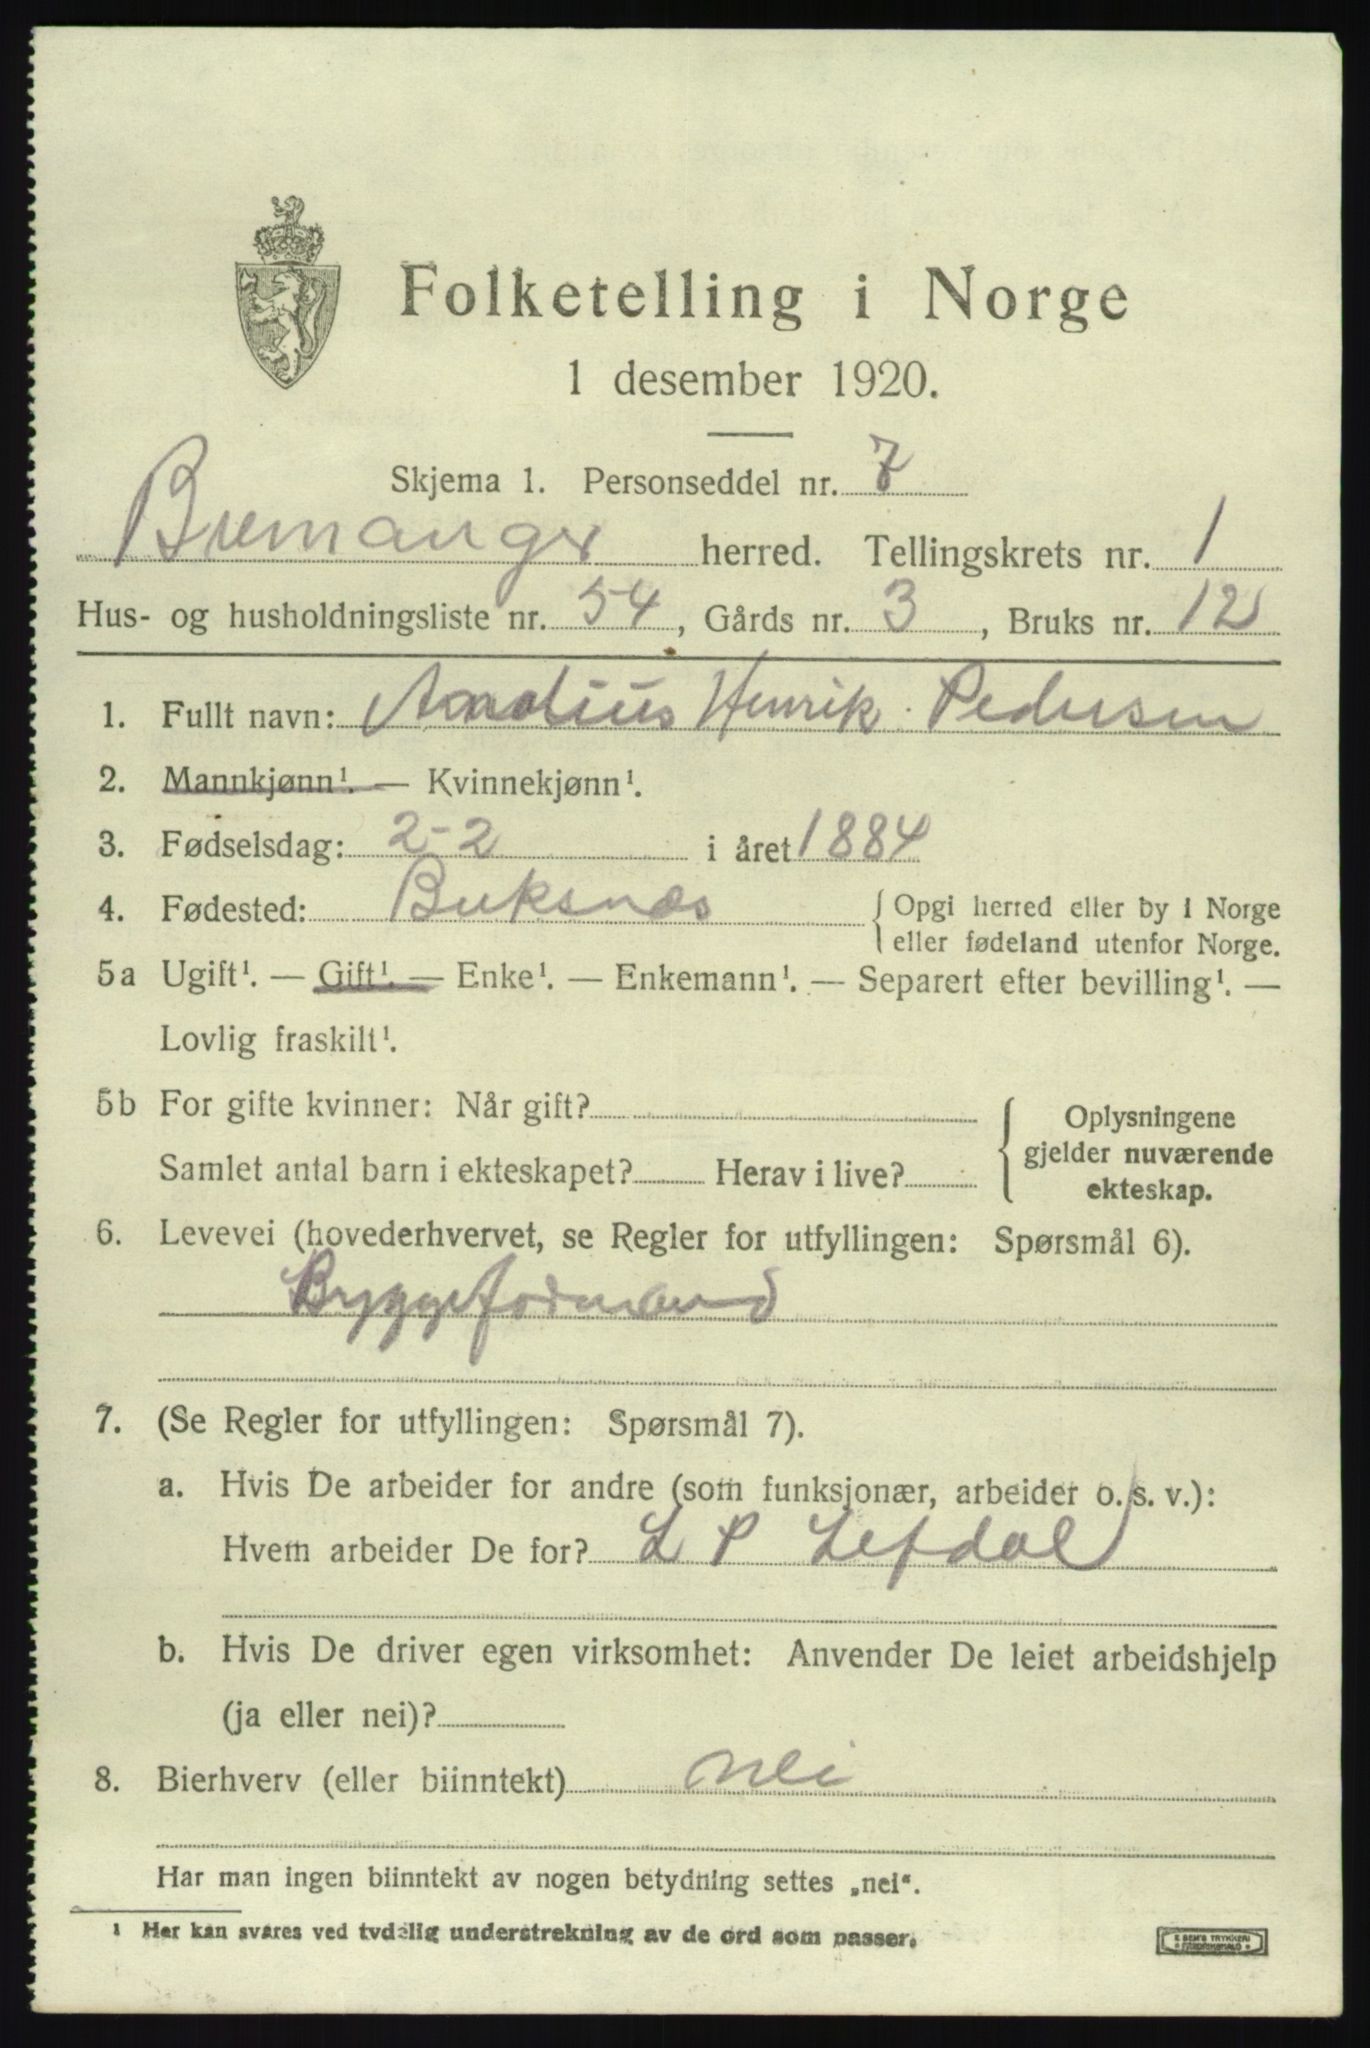 Folketelling i Norge
1 desember 1920.
Skjema 1. Personseddel nr. 7
Bremanger herred. Tellingskrets nr. 1
Hus- og husholdningsliste nr. 54, Gårds nr. 3, Bruks nr. 12
1. Fullt navn: Henrik Pedersen
2. Mannkjønn¹. — Kvinnekjønn¹.
3. Fødselsdag: 2-2 i året 1884
4. Fødested: Buksnæs { Opgi herred eller by i Norge
eller fødeland utenfor Norge.
5a Ugift¹. — Gift¹. — Enke¹. — Enkemann¹. — Separert efter bevilling¹. —
Lovlig fraskilt¹.
5b For gifte kvinner: Når gift? { Oplysningene
gjelder nuværende
Samlet antal barn i ekteskapet? Herav i live?
ekteskap.
6. Levevei (hovederhvervet, se Regler for utfyllingen: Spørsmål 6).
Byggeformand
7. (Se Regler for utfyllingen: Spørsmål 7).
a. Hvis De arbeider for andre (som funksjonær, arbeider o. s. v.):
Hvem arbeider De for? L P Lefdal
b. Hvis De driver egen virksomhet: Anvender De leiet arbeidshjelp
(ja eller nei)?
8. Bierhverv (eller biinntekt) nei
Har man ingen biinntekt av nogen betydning settes „nei“.
¹ Her kan svares ved tydelig understrekning av de ord som passer.